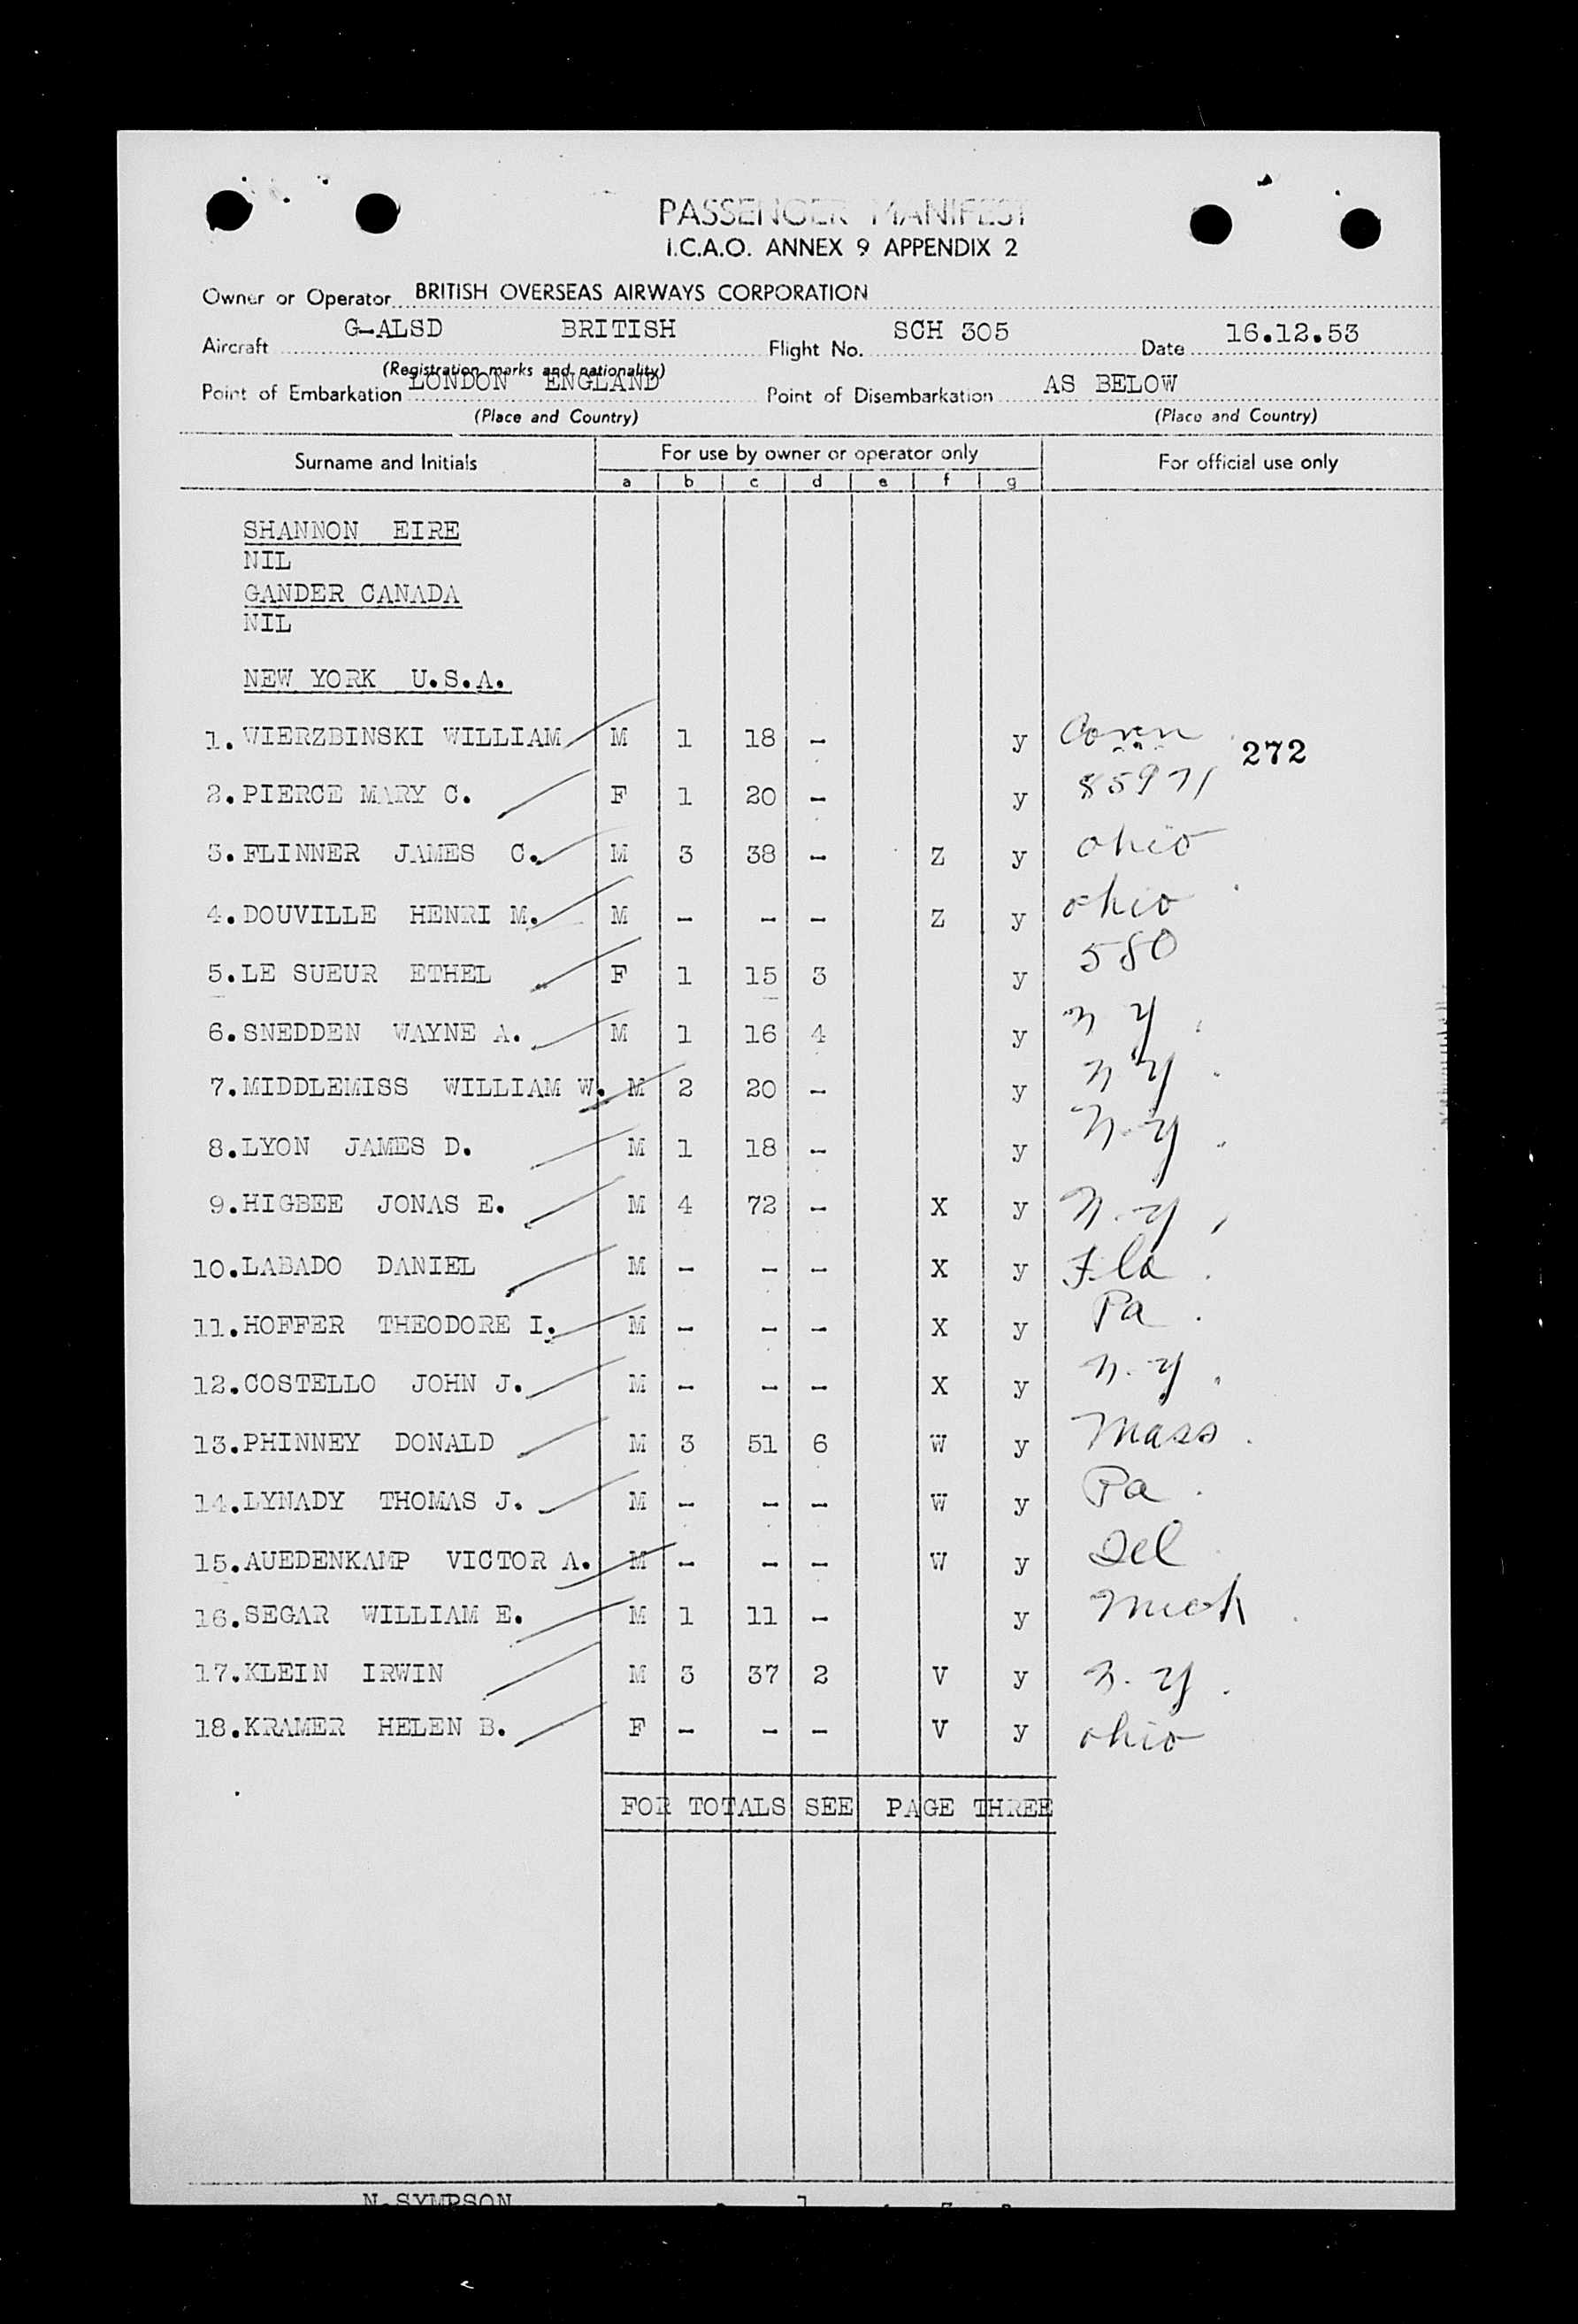 PASSENGER MANIFEST
I.C.A.O. ANNEX 9 APPENDIX 2
Owner or Operator BRITISH OVERSEAS AIRWAYS CORPORATION
Aircraft G-ALSD BRITISH Flight No. SCH 305 Date 16.12.53
(Registration marks and nationality)
Point of Embarkation LONDON ENGLAND Point of Disembarkation AS BELOW
(Place and Country) (Place and Country)
Surname and Initials For use by owner or operator only For official use only
a b c d e f g
SHANNON EIRE
NIL
GANDER CANADA
NIL
NEW YORK U.S.A.
1. WIERZBINSKI WILLIAM M 1 18 - y Conn 272
2. PIERCE MARY C. F 1 20 - y 85971
3. FLINNER JAMES C. M 3 38 - Z y ohio
4. DOUVILLE HENRI M. M - - - Z y ohio
5. LE SUEUR ETHEL F 1 15 3 y 580
6. SNEDDEN WAYNE A. M 1 16 4 y n y.
7. MIDDLEMISS WILLIAM W. M 2 20 - y n y.
8. LYON JAMES D. M 1 18 - y n.y.
9. HIGBEE JONAS E. M 4 72 - X y n.y.
10. LABADO DANIEL M - - - X y Fla.
11. HOFFER THEODORE I. M - - - X y Pa.
12. COSTELLO JOHN J. M - - - X y n.y.
13. PHINNEY DONALD M 3 51 6 W y Mass.
14. LYNADY THOMAS J. M - - - W y Pa.
15. AUEDENKAMP VICTOR A. M - - - W y Del
16. SEGAR WILLIAM E. M 1 11 - y Mich
17. KLEIN IRWIN M 3 37 2 V y n.y.
18. KRAMER HELEN B. F - - - V y ohio
FOR TOTALS SEE PAGE THREE
N. SYMPSON